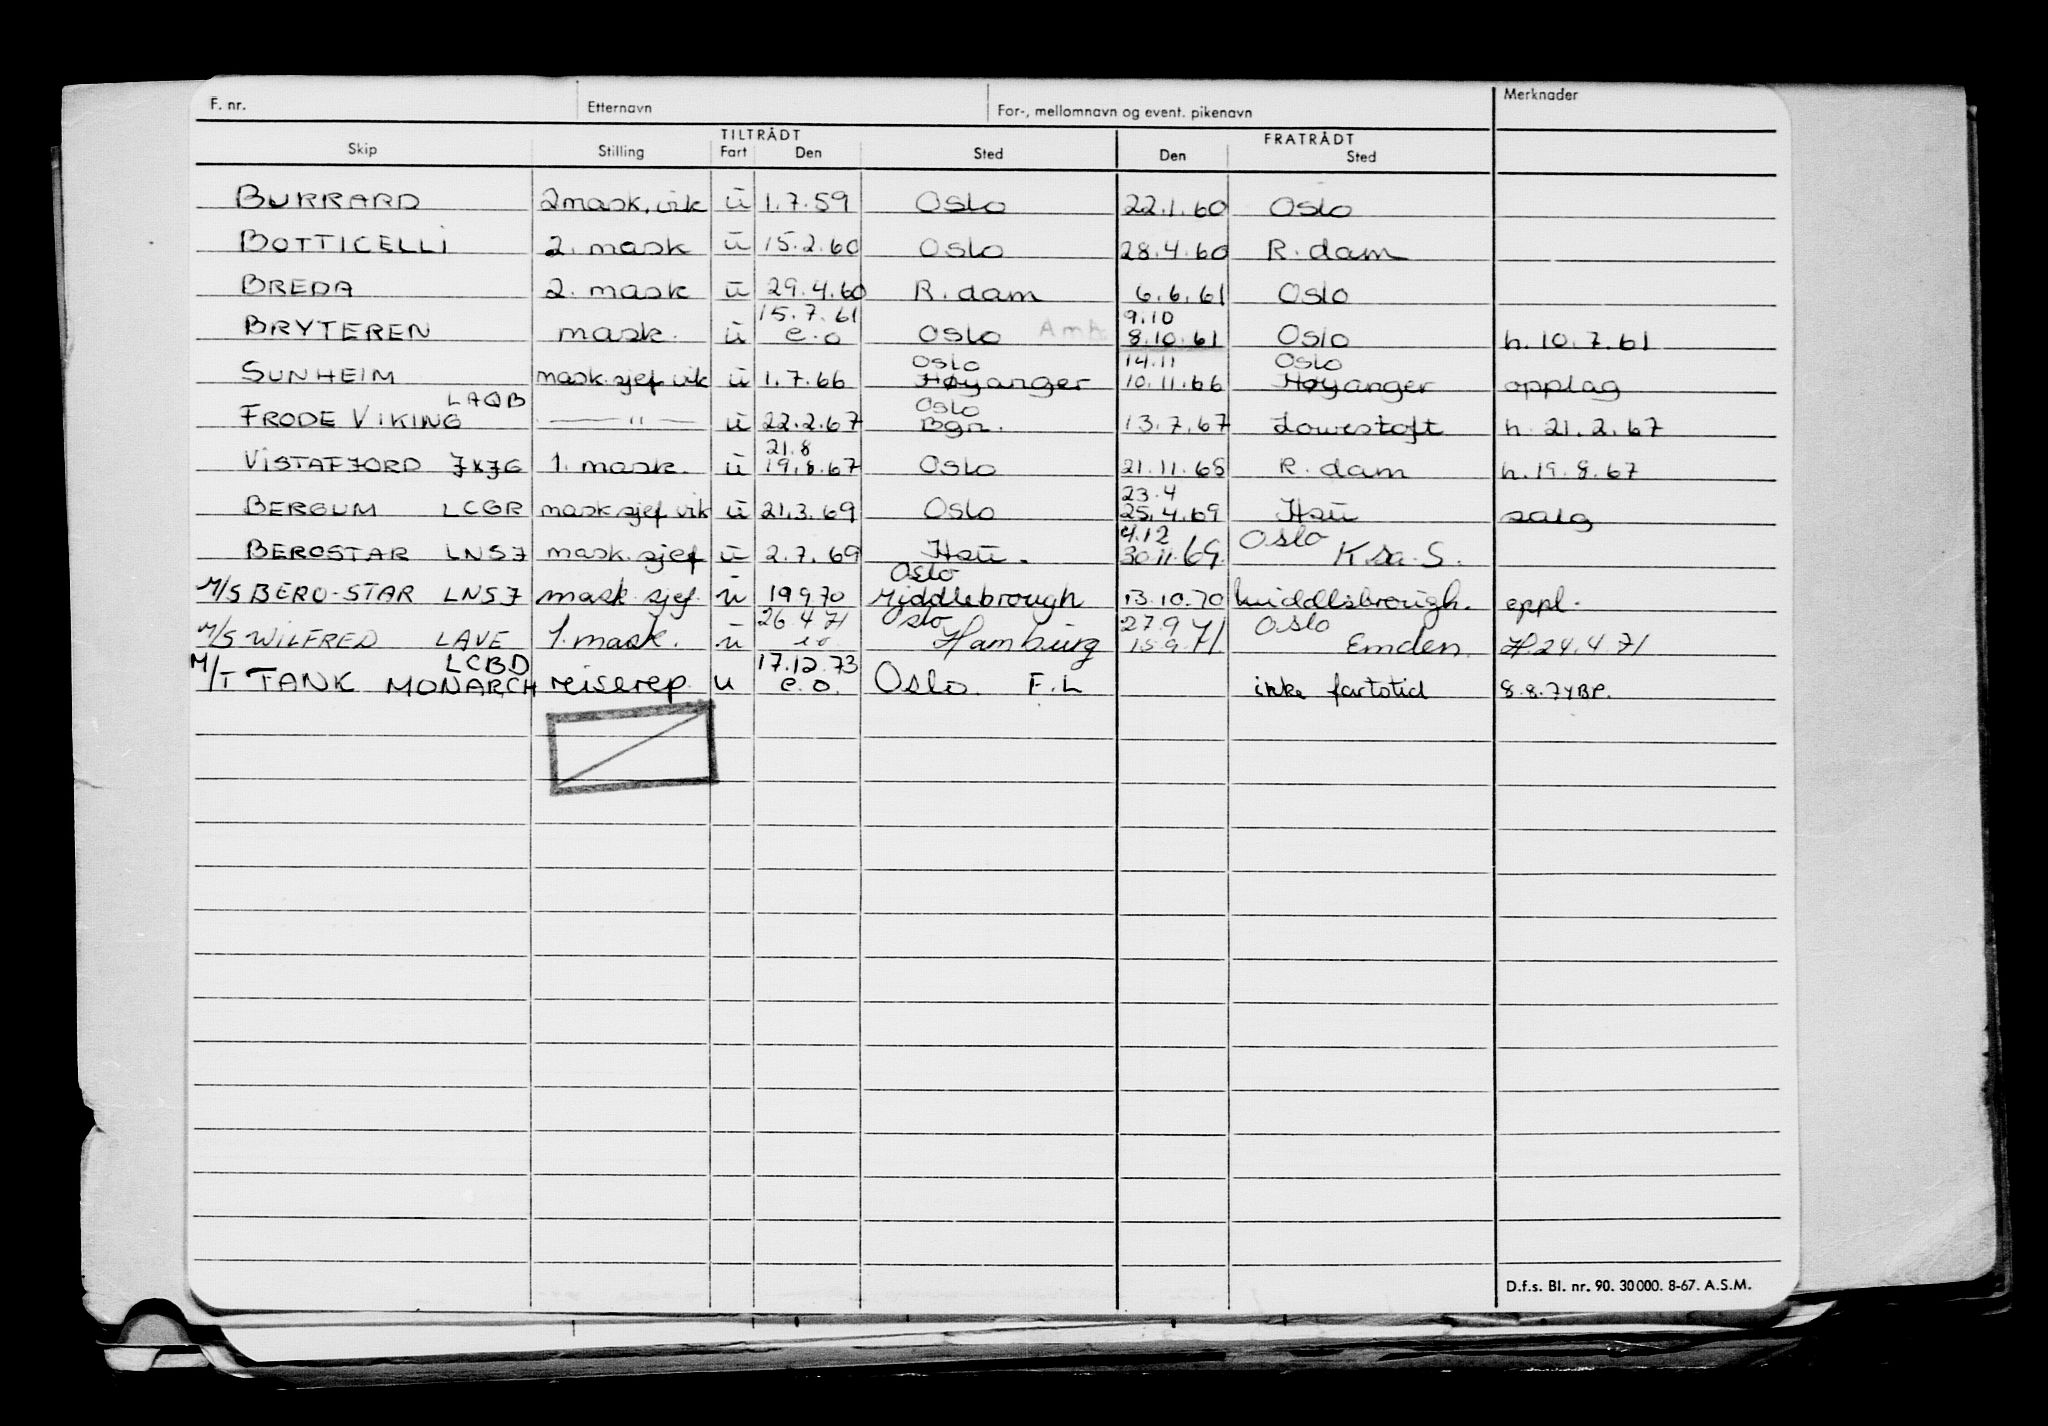 F. nr. Etternavn For-, mellomnavn og event. pikenavn Merknader
TILTRÅDT FRATRÅDT
Skip Stilling Fart Den Sted Den Sted
BURRARD 2 mask. vik ū 1.7.59 Oslo 22.1.60 Oslo
BOTTICELLI 2. mask ū 15.2.60 Oslo 28.4.60 R.dam
BREDA 2. mask ū 29.4.60 R.dam 6.6.61 Oslo
15.7.61 9.10
BRYTEREN mask. ū e.o Oslo 8.10.61 Oslo h. 10.7.61
Oslo 14.11 Oslo
SUNHEIM mask.sjef vik ū 1.7.66 Høyanger 10.11.66 Høyanger opplag
LAQB Oslo
FRODE VIKING — " — ū 22.2.67 Bgn. 13.7.67 Lowestoft h. 21.2.67
21.8
VISTAFJORD JXJG 1. mask. ū 19.8.67 Oslo 21.11.68 R.dam h.19.8.67
23.4
BERGUM LCGR mask.sjef vik ū 21.3.69 Oslo 25.4.69 Hsū salg
4.12 Oslo
BEROSTAR LNSJ mask.sjef ū 2.7.69 Hsū. 30.11.69. K sa. S.
Oslo
M/S BERO-STAR LNSJ mask sjef. ū 19 9 70 Middlebrough 13.10.70 Middlsbrough. oppl.
26 4 71 Oslo 27.9 71 Oslo
M/S WILFRED LAVE 1. mask. ū Hamburg 15.9.71 Emden. H.24.4.71
LCBD 17.12.73
M/T TANK MONARCH reiserep. u e.o. Oslo. F.L ikke fartstid 8.8.74 BP.
D.f.s. Bl. nr. 90. 30000. 8-67. A.S.M.